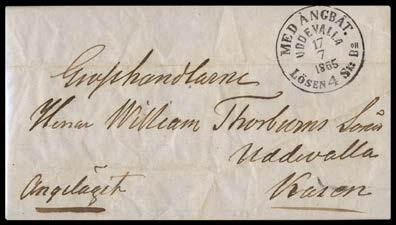 MED ÅNGBÅT.
UDDEVALLA
17
7
1865
LÖSEN 4 Sk: Bco
Grosshandlarne
Herrar William Thorburns Söner
Uddevalla
Kasen
Angeläget